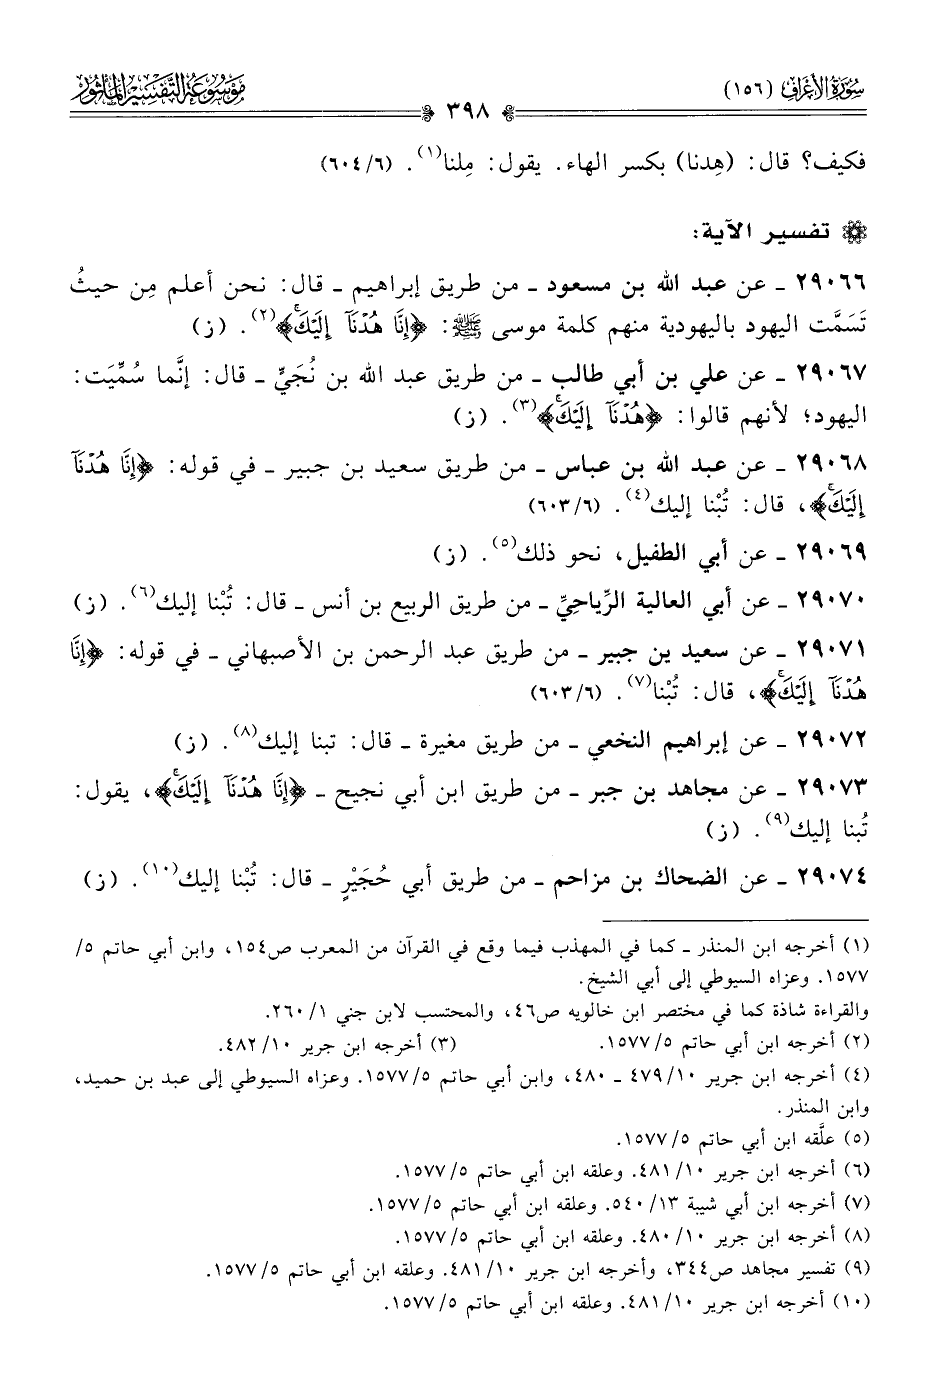 سُورَةُ الأَعْرَافِ (١٥٦)
٣٩٨
مَوْسُوعَةُ التَّفْسِيرِ المَأْثُورِ
فكيف؟ قال: (هِدنا) بكسر الهاء. يقول: مِلنا(١). (٦/٦٠٤)
تفسير الآية:
٢٩٠٦٦ ـ عن عبد الله بن مسعود ـ من طريق إبراهيم ـ قال: نحن أعلم مِن حيثُ
تَسَمَّت اليهود باليهودية منهم كلمة موسى ﷺ: ﴿إِنَّا هُدْنَآ إِلَيْكَۚ﴾(٢). (ز)
٢٩٠٦٧ ـ عن علي بن أبي طالب ـ من طريق عبد الله بن نُجَيٍّ ـ قال: إنَّما سُمِّيَت:
اليهود؛ لأنهم قالوا: ﴿هُدْنَآ إِلَيْكَۚ﴾(٣). (ز)
٢٩٠٦٨ ـ عن عبد الله بن عباس ـ من طريق سعيد بن جبير ـ في قوله: ﴿إِنَّا هُدْنَآ
إِلَيْكَۚ﴾، قال: تُبْنا إليك(٤). (٦/٦٠٣)
٢٩٠٦٩ ـ عن أبي الطفيل، نحو ذلك(٥). (ز)
٢٩٠٧٠ ـ عن أبي العالية الرِّياحيِّ ـ من طريق الربيع بن أنس ـ قال: تُبْنا إليك(٦). (ز)
٢٩٠٧١ ـ عن سعيد بن جبير ـ من طريق عبد الرحمن بن الأصبهاني ـ في قوله: ﴿إِنَّا
هُدْنَآ إِلَيْكَۚ﴾، قال: تُبْنا(٧). (٦/٦٠٣)
٢٩٠٧٢ ـ عن إبراهيم النخعي ـ من طريق مغيرة ـ قال: تبنا إليك(٨). (ز)
٢٩٠٧٣ ـ عن مجاهد بن جبر ـ من طريق ابن أبي نجيح ـ ﴿إِنَّا هُدْنَآ إِلَيْكَۚ﴾، يقول:
تُبنا إليك(٩). (ز)
٢٩٠٧٤ ـ عن الضحاك بن مزاحم ـ من طريق أبي حُجَيْرٍ ـ قال: تُبْنا إليك(١٠). (ز)
(١) أخرجه ابن المنذر ـ كما في المهذب فيما وقع في القرآن من المعرب ص١٥٤، وابن أبي حاتم ٥/
١٥٧٧. وعزاه السيوطي إلى أبي الشيخ.
والقراءة شاذة كما في مختصر ابن خالويه ص٤٦، والمحتسب لابن جني ١/٢٦٠.
(٢) أخرجه ابن أبي حاتم ٥/١٥٧٧. (٣) أخرجه ابن جرير ١٠/٤٨٢.
(٤) أخرجه ابن جرير ١٠/٤٧٩ ـ ٤٨٠، وابن أبي حاتم ٥/١٥٧٧. وعزاه السيوطي إلى عبد بن حميد،
وابن المنذر.
(٥) علَّقه ابن أبي حاتم ٥/١٥٧٧.
(٦) أخرجه ابن جرير ١٠/٤٨١. وعلقه ابن أبي حاتم ٥/١٥٧٧.
(٧) أخرجه ابن أبي شيبة ١٣/٥٤٠. وعلقه ابن أبي حاتم ٥/١٥٧٧.
(٨) أخرجه ابن جرير ١٠/٤٨٠. وعلقه ابن أبي حاتم ٥/١٥٧٧.
(٩) تفسير مجاهد ص٣٤٤، وأخرجه ابن جرير ١٠/٤٨١. وعلقه ابن أبي حاتم ٥/١٥٧٧.
(١٠) أخرجه ابن جرير ١٠/٤٨١. وعلقه ابن أبي حاتم ٥/١٥٧٧.